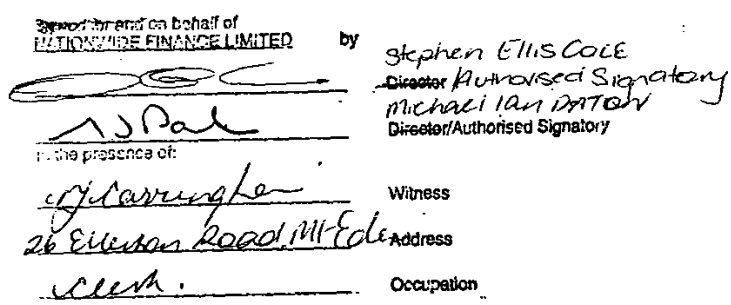 Signed for and on behalf of
NATIONWIDE FINANCE LIMITED by
Stephen Ellis Cole
Director/Authorised Signatory
Michael Ian
Director/Authorised Signatory
In the presence of:
Witness
26 Road, Mt-Eden Address
Clerk. Occupation